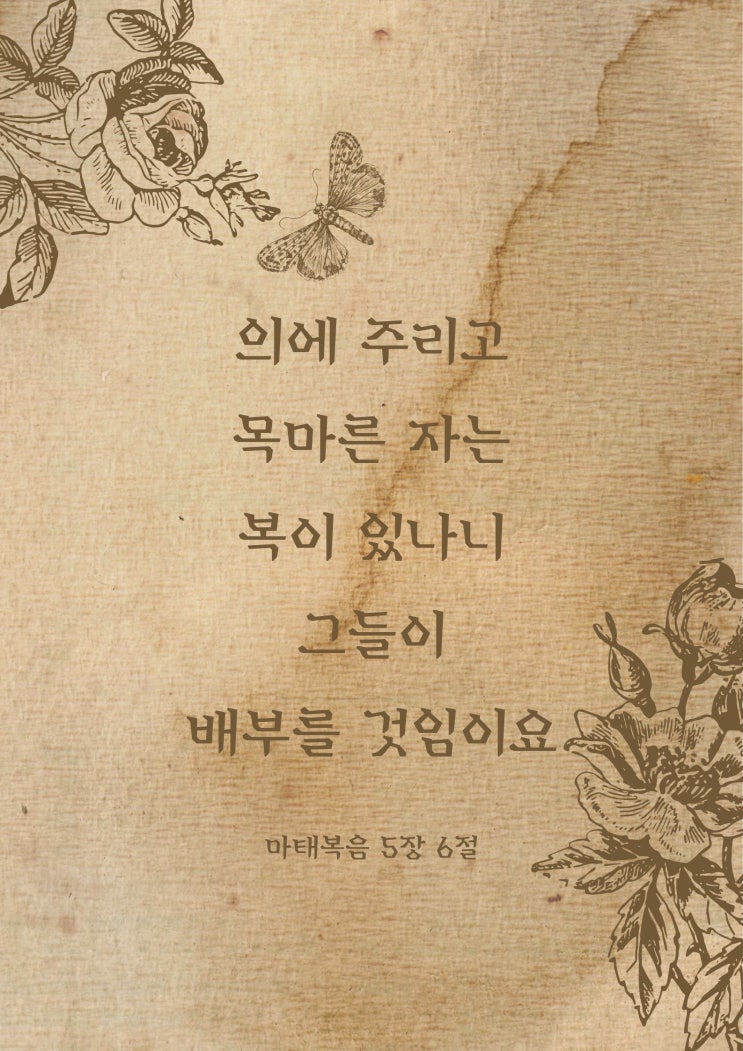 의에 주리고
목마른 자는
복이 있나니
그들이
배부를 것임이요
마태복음 5장 6절